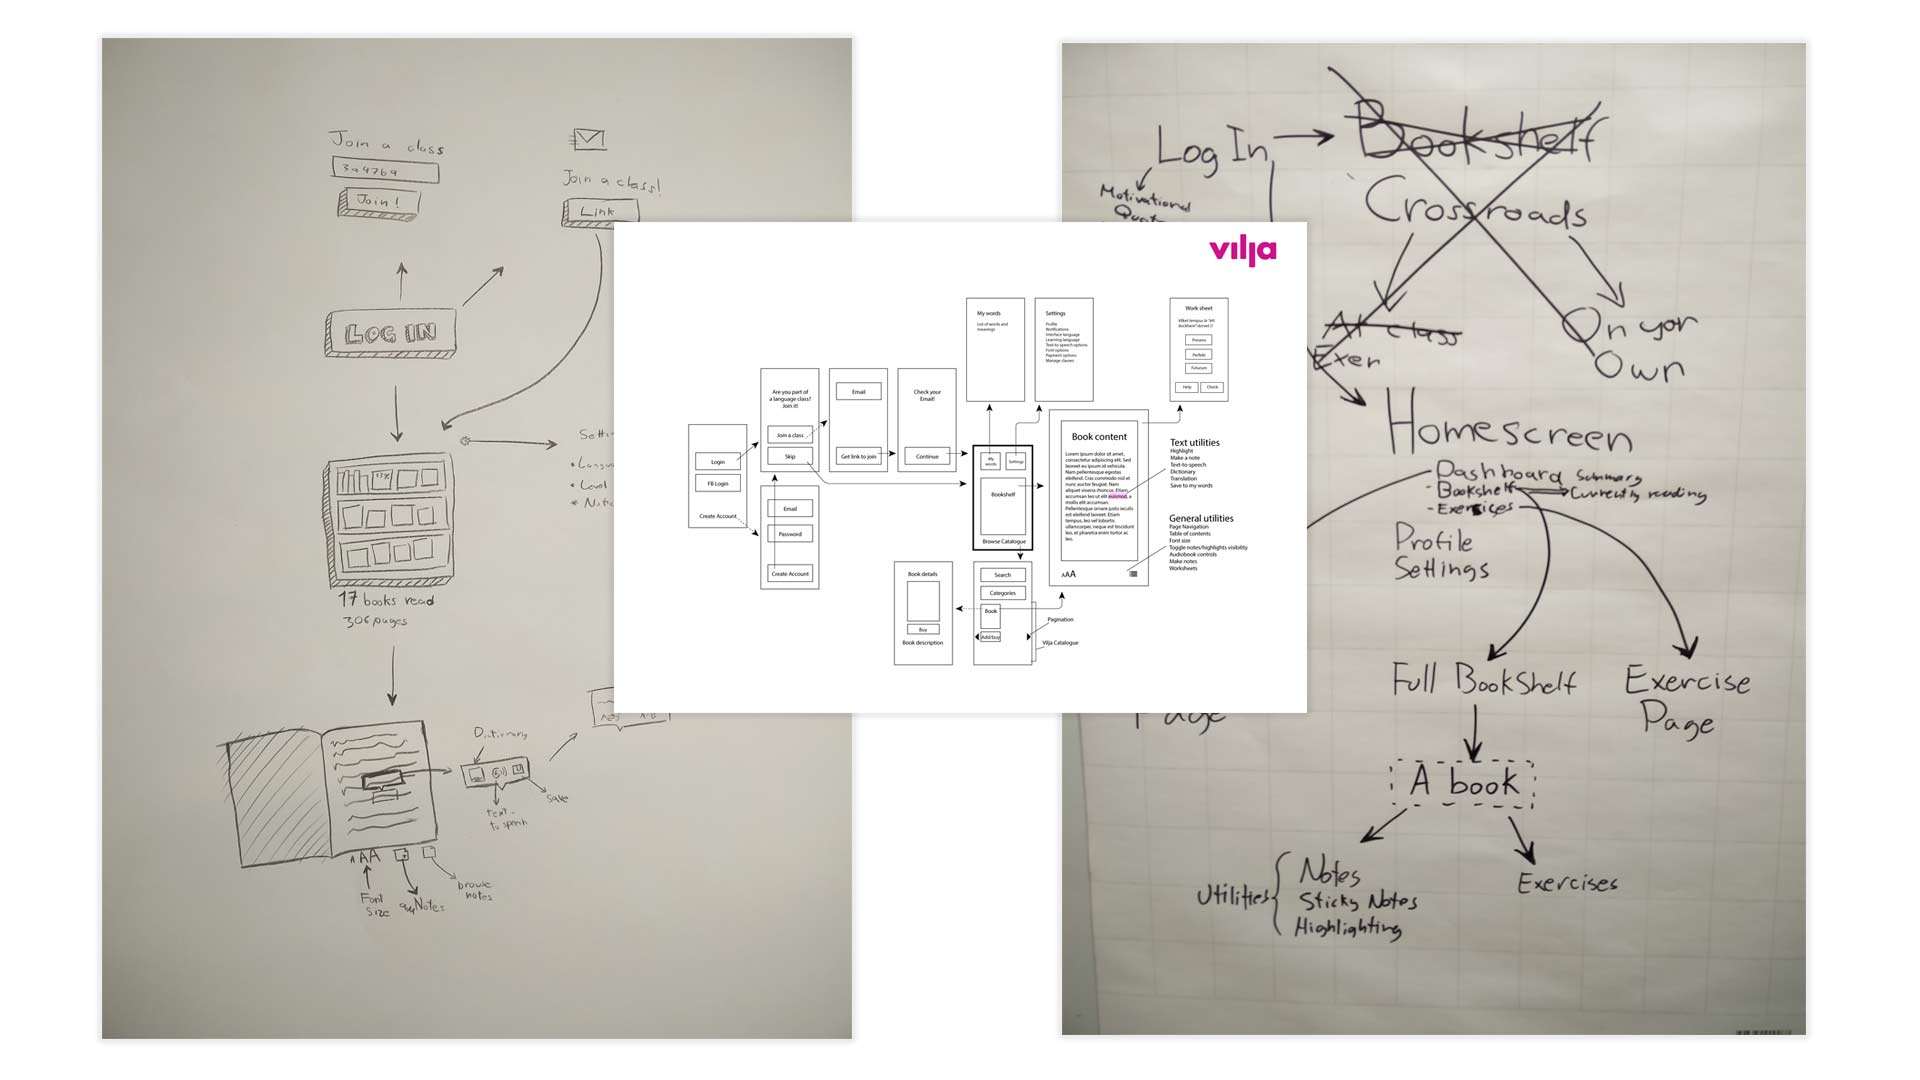 Join a class
3a4769
Join!
Join a class!
Link
LOG IN
17 books read
306 pages
Dictionary
text-
to speech
Save
AAA
Font
Size
Notes
browse
notes
vilja
Login
FB Login
Create Account
Are you part of
a language class?
Join it!
Join a class
Skip
Email
Password
Create Account
Email
Get link to join
Check your
Email!
Continue
My words
List of words and
meanings
Settings
Profile
Notifications
Interface language
Learning language
Text-to-speech options
Font options
Payment options
Manage classes
My
words
Settings
Bookshelf
Browse Catalogue
Book content
Lorem ipsum dolor sit amet,
consectetur adipiscing elit. Sed
laoreet eu ipsum id vehicula.
Nam pellentesque egestas
eleifend. Cras commodo nisl et
nunc auctor feugiat. Nam
aliquet viverra rhoncus. Etiam
accumsan leo ut elit euismod, a
mollis elit accumsan.
Pellentesque ornare justo iaculis
est eleifend laoreet. Etiam
tempus, leo vel lobortis
ullamcorper, neque est tincidunt
leo, et pharetra enim tortor ac
leo.
AAA
Work sheet
Presens
Perfekt
Futurum
Help
Check
Text utilities
Highlight
Make a note
Text-to-speech
Dictionary
Translation
Save to my words
General utilities
Page Navigation
Table of contents
Font size
Toggle notes/highlights visibility
Audiobook controls
Make notes
Worksheets
Book details
Buy
Book description
Search
Categories
Book
Add/buy
Pagination
Vilja Catalogue
Log In
Bookshelf
Motivational
Crossroads
At class
Exer
On yor
Own
Homescreen
- Dashboard Summary
- Bookshelf Currently reading
- Exercises
Profile
Settings
Full Bookshelf
Exercise
Page
Page
A book
Utilities
Notes
Sticky Notes
Highlighting
Exercises